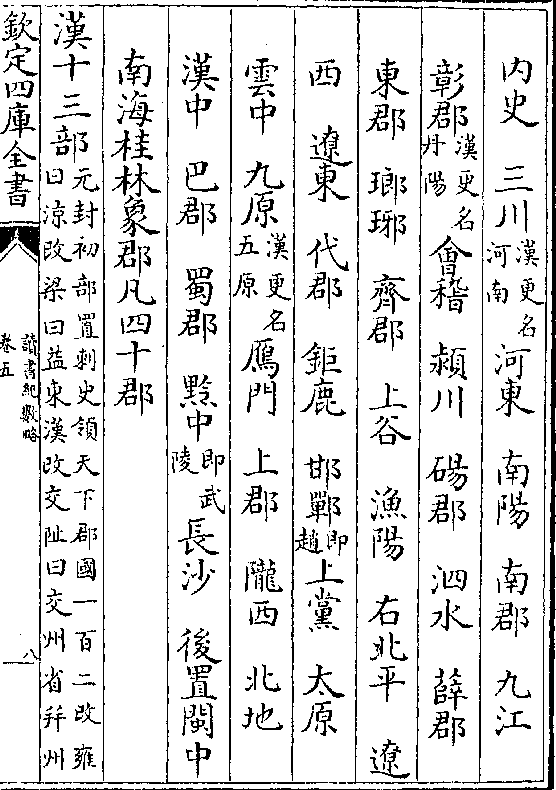 内史　三川漢更名河南河東　南陽　南郡　九江
彰郡漢更名丹陽會稽　潁川　碭郡　泗水　薛郡
東郡　瑯琊　齊郡　上谷　漁陽　右北平　遼
西　遼東　代郡　鉅鹿　邯鄲即趙上黨　太原
雲中　九原漢更名五原鴈門　上郡　隴西　北地
漢中　巴郡　蜀郡　黔中即武陵長沙　後置閩中
南海桂林象郡凡四十郡
漢十三部元封初部置刺史領天下郡國一百二改雍曰涼改梁曰益東漢改交阯曰交州省并州
欽定四庫全書
讀書紀數略
卷五
八